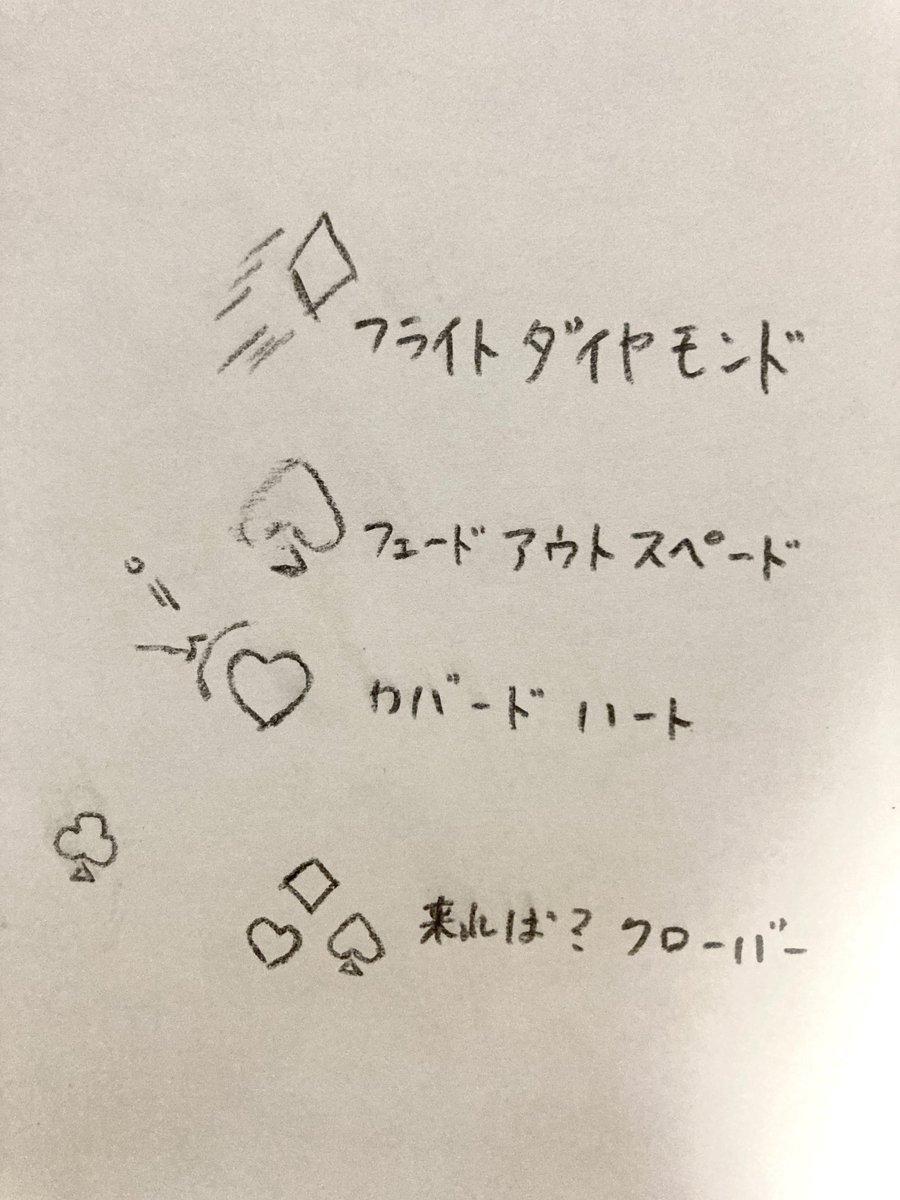 フライトダイヤモンド
フェードアウトスペード
カバードハート
来れば？クローバー